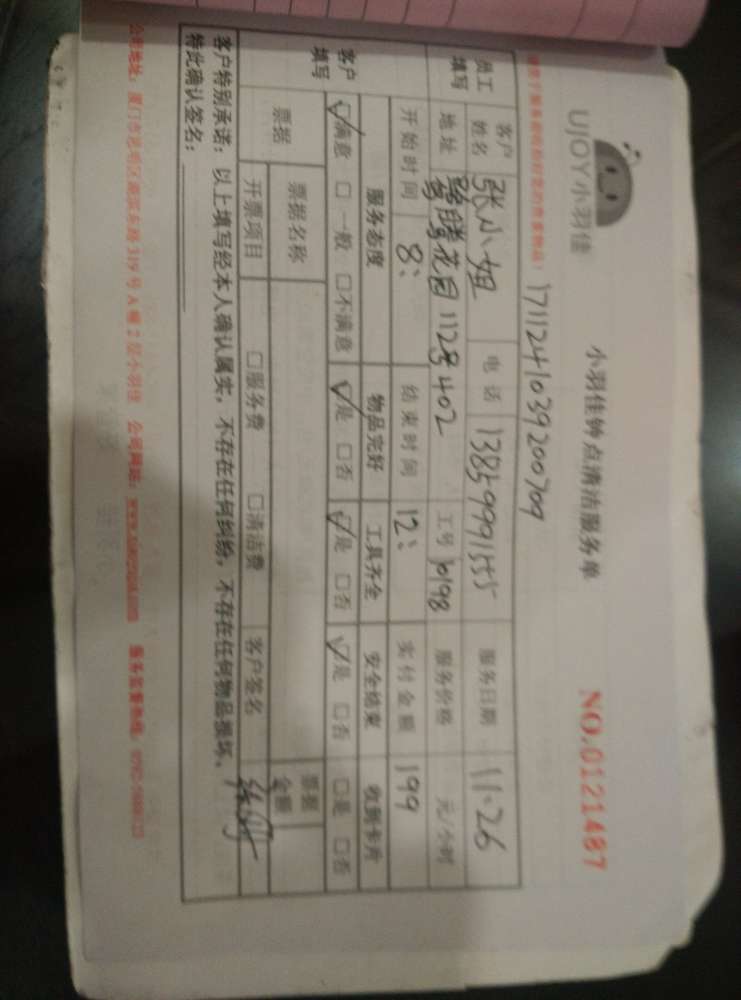 UJOY小羽佳
小羽佳钟点清洁服务单
NO.0121487
1711241039200709
员工填写
客户姓名 张小姐 电话 13859991555 服务日期 11.26
地址 鹭腾花园112号402 工号 10198 服务价格 元/小时
开始时间 8: 结束时间 12: 实付金额 199
客户填写
服务态度 物品完好 工具齐全 安全结束 收到卡片
☑满意 □一般 □不满意 ☑是 □否 ☑是 □否 ☑是 □否 □是 □否
票据 票据名称 票据金额
开票项目 □服务费 □清洁费 客户签名
客户特别承诺：以上填写经本人确认属实，不存在任何纠纷，不存在任何物品损坏，
特此确认签名：
公司地址：厦门市思明区湖滨东路319号A幢2层小羽佳 公司网站：